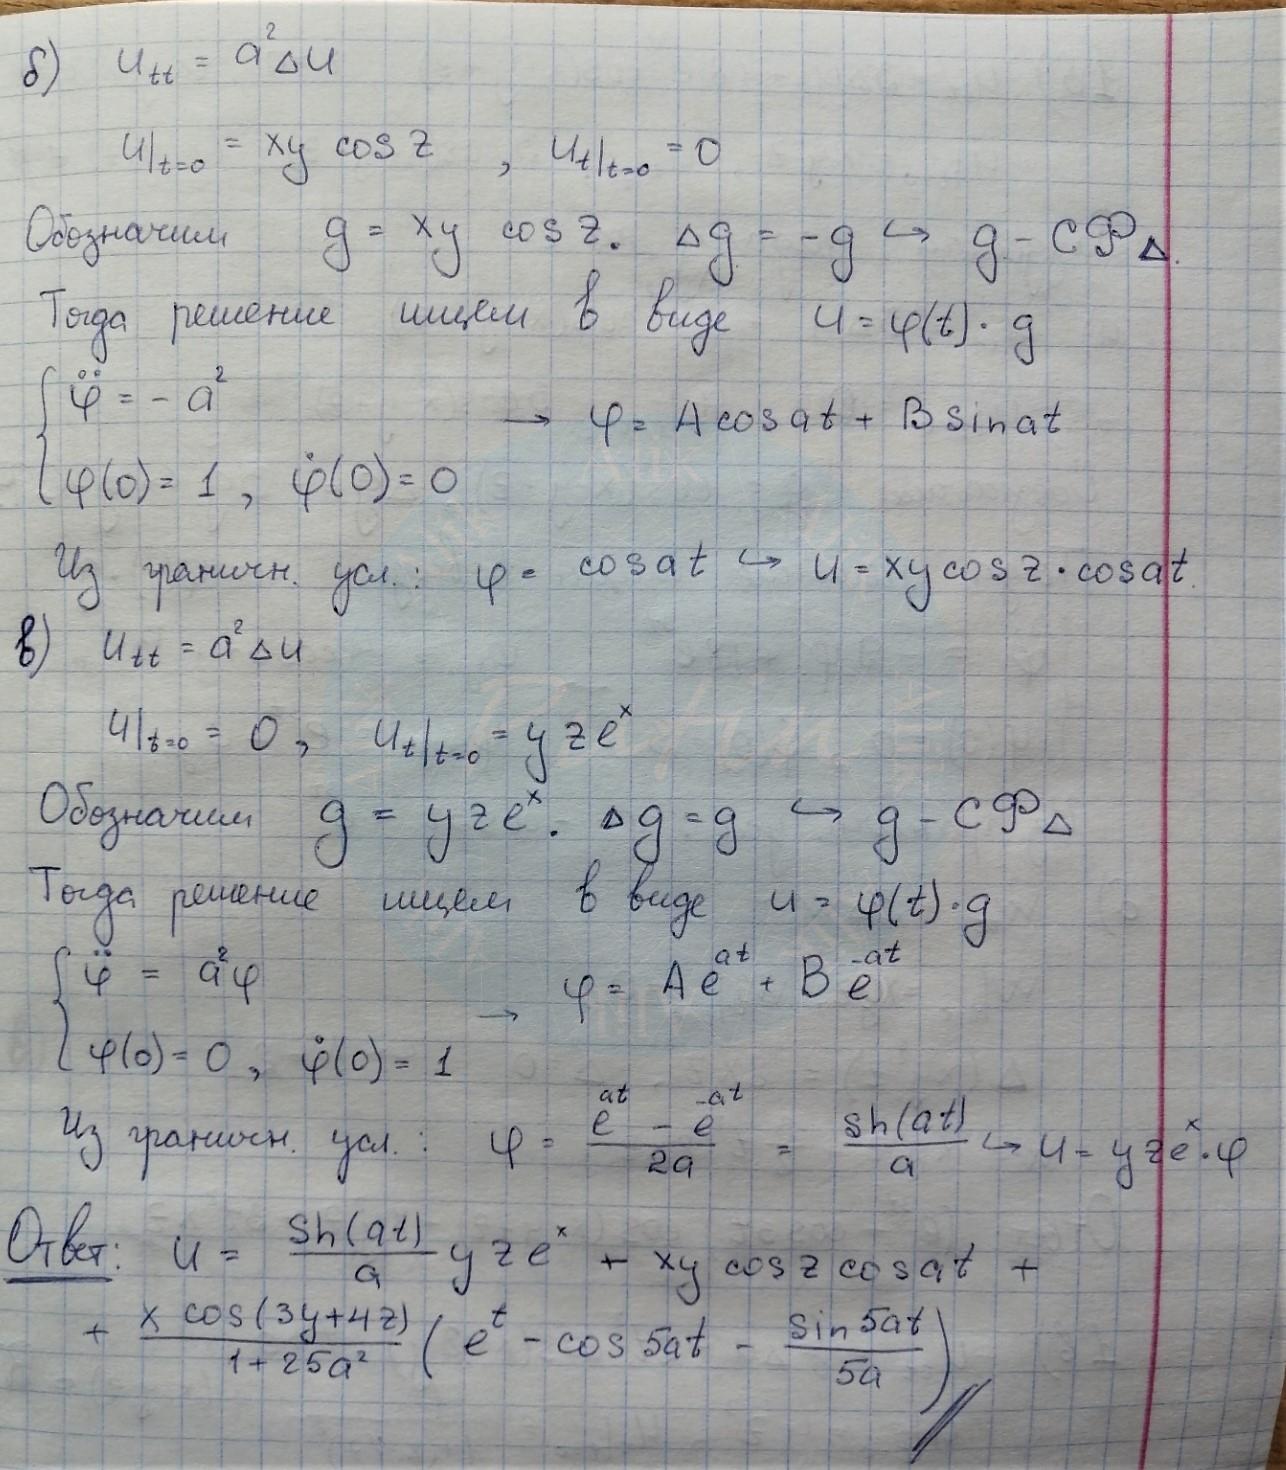 б) u_tt = a²Δu
u|_t=0 = xy cos z , u_t|_t=0 = 0
Обозначим g = xy cos z. Δg = -g ↪ g - СФ_Δ.
Тогда решение ищем в виде u = φ(t)·g
{ φ̈ = -a² → φ = A cos at + B sin at
φ(0) = 1 , φ̇(0) = 0
Из граничн. усл.: φ = cos at ↪ u = xy cos z · cos at.
в) u_tt = a²Δu
u|_t=0 = 0, u_t|_t=0 = y z e^x
Обозначим g = y z e^x. Δg = g ↪ g - СФ_Δ
Тогда решение ищем в виде u = φ(t)·g
{ φ̈ = a²φ → φ = A e^at + B e^-at
φ(0) = 0, φ̇(0) = 1
Из граничн. усл.: φ = (e^at - e^-at)/2a = sh(at)/a ↪ u = y z e^x·φ
Ответ: u = sh(at)/a y z e^x + xy cos z cos at +
+ x cos(3y+4z)/(1+25a²) (e^t - cos 5at - sin 5at/5a)